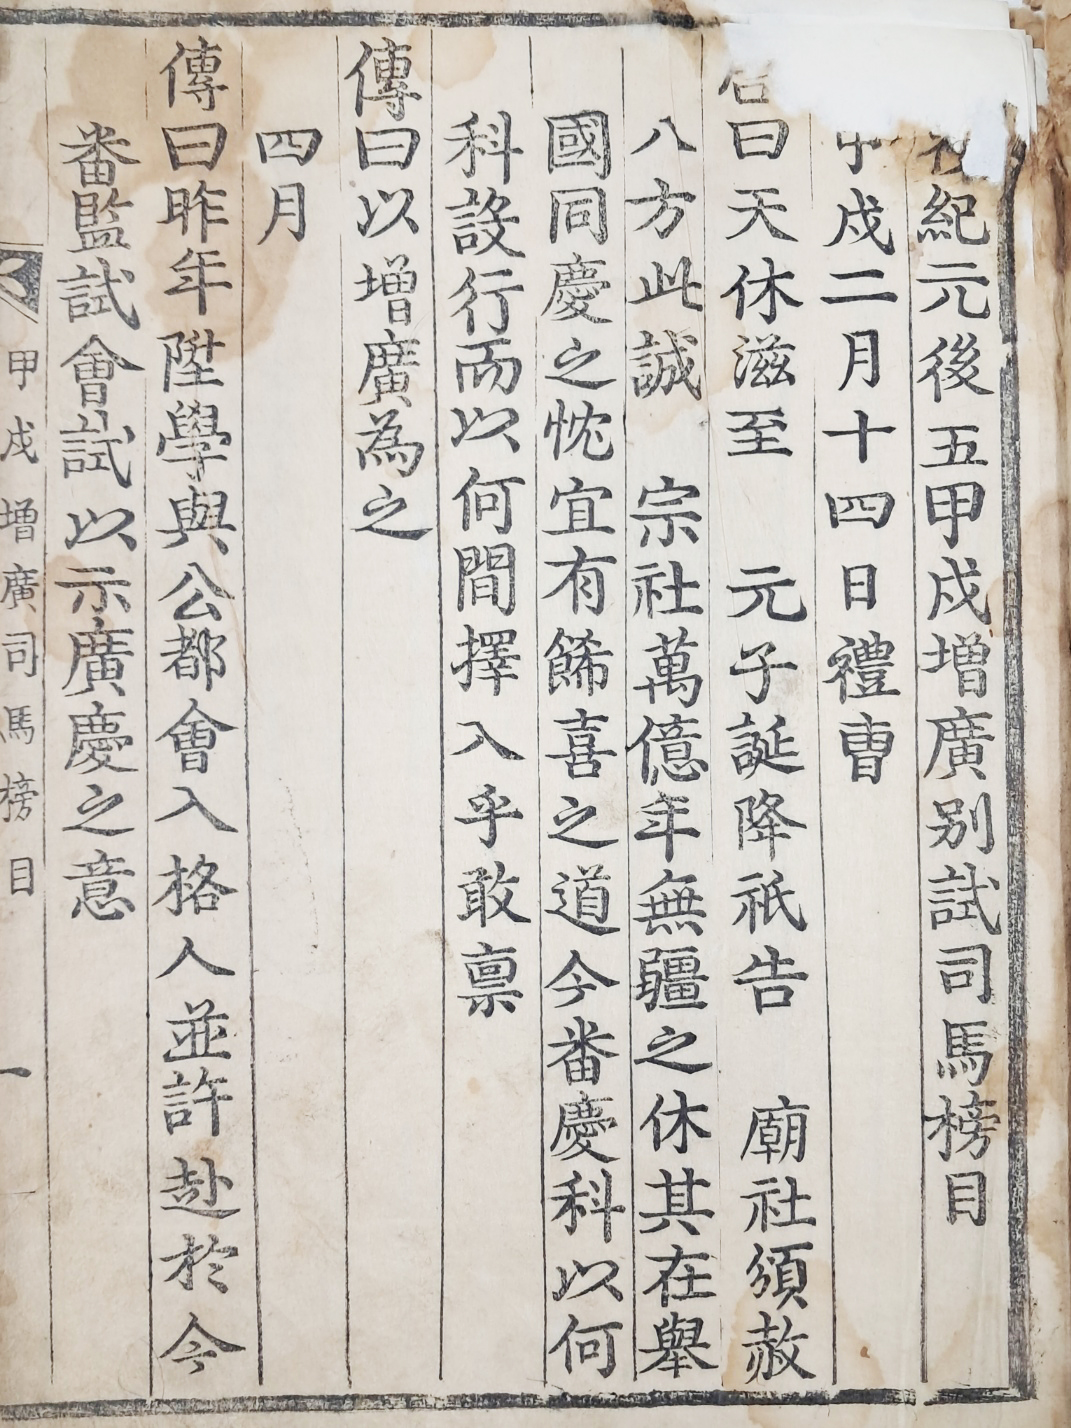 紀元後五甲戌增廣别試司馬榜目
戌二月十四日禮曺
曰天休滋至　元子誕降祇告　廟社頒赦
八方此誠　宗社萬億年無疆之休其在舉
國同慶之忱宜有餙喜之道今番慶科以何
科設行而以何間擇入乎敢禀
傳曰以增廣為之
四月
傳曰昨年陞學與公都會入格人並許赴於今
番監試會試以示廣慶之意
甲戌增廣司馬榜目　一